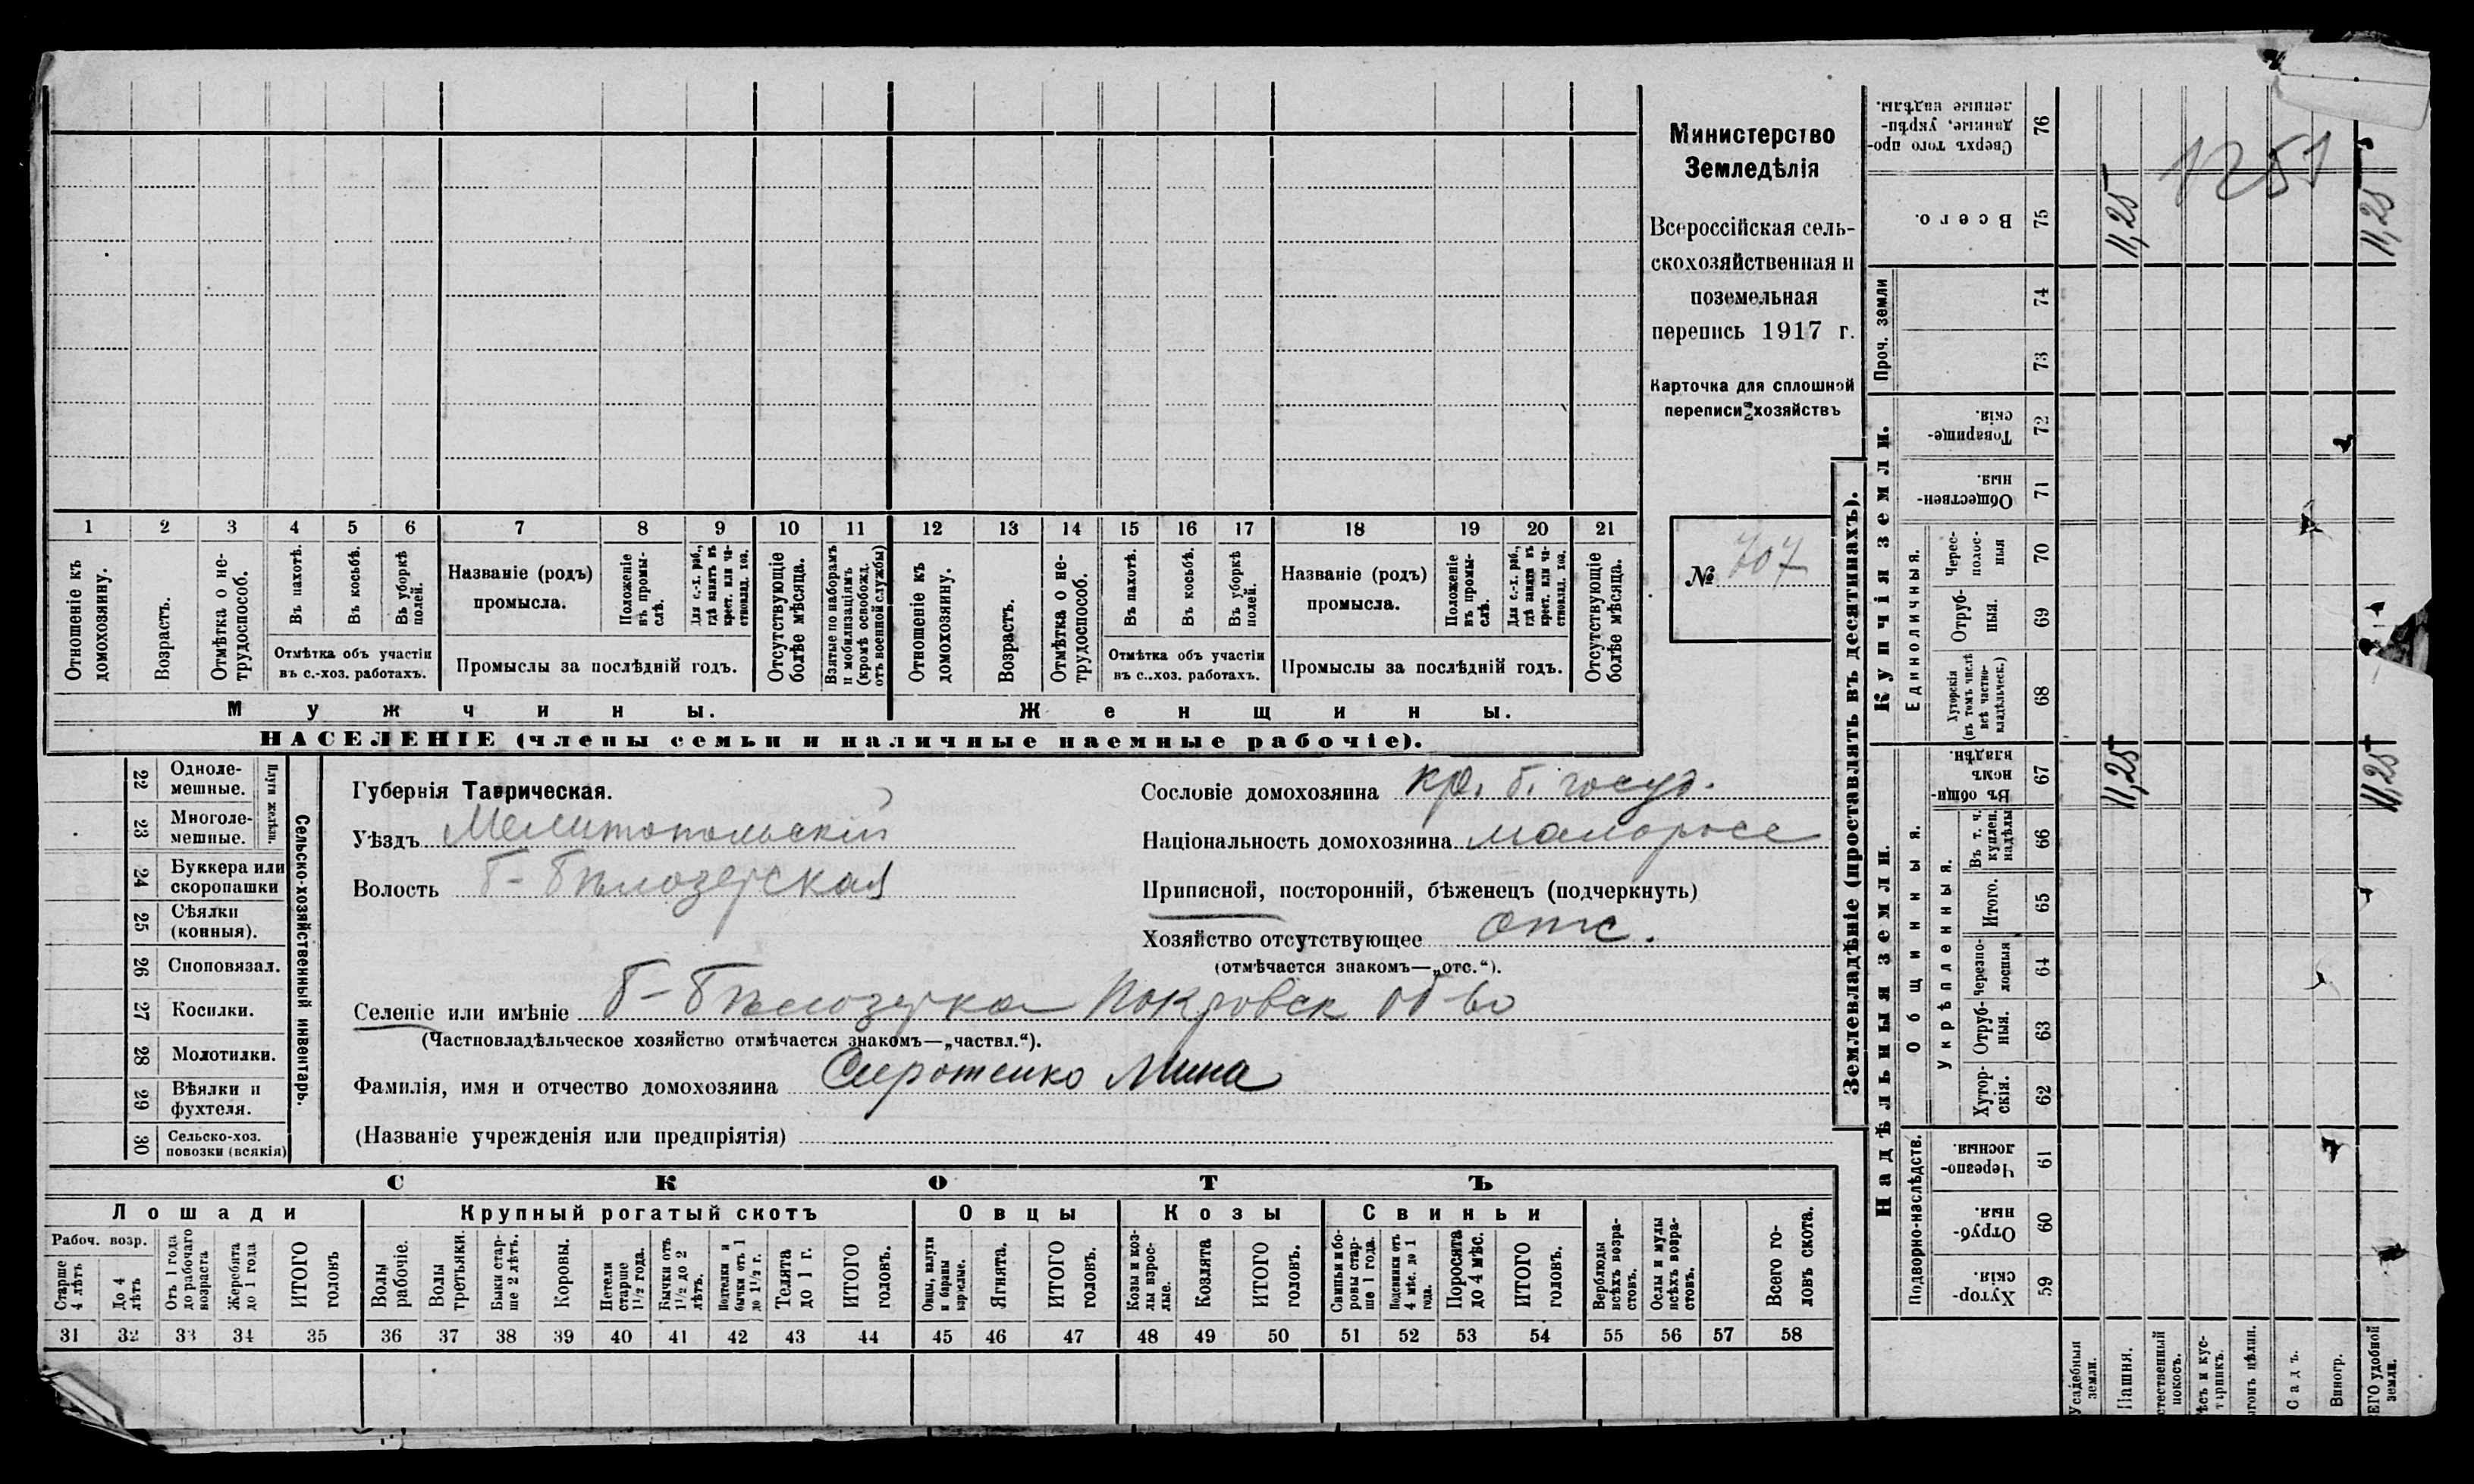 Министерство
Земледѣлія
Всероссійская сель-
скохозяйственная и
поземельная
перепись 1917 г.
Карточка для сплошной
переписи хозяйствъ
№ 707
1 2 3 4 5 6 7 8 9 10 11 12 13 14 15 16 17 18 19 20 21
Отношеніе къ домохозяину.
Возрастъ.
Отмѣтка о не-трудоспособ.
Въ пахотѣ.
Въ косьбѣ.
Въ уборкѣ полей.
Отмѣтка объ участіи
въ с.-хоз. работахъ.
Названіе (родъ)
промысла.
Положеніе въ промы-слѣ.
Для с.-х. раб., гдѣ занятъ въ крест. или ча-стновлад. хоз.
Промыслы за послѣдній годъ.
Отсутствующіе болѣе мѣсяца.
Взятые по наборамъ и мобилизаціямъ (кромѣ освобожд. отъ военной службы)
Отношеніе къ домохозяину.
Возрастъ.
Отмѣтка о не-трудоспособ.
Въ пахотѣ.
Въ косьбѣ.
Въ уборкѣ полей.
Отмѣтка объ участіи
въ с..хоз. работахъ.
Названіе (родъ)
промысла.
Положеніе въ промы-слѣ.
Для с.-х. раб., гдѣ занята въ крест. или ча-стновлад. хоз.
Промыслы за послѣдній годъ.
Отсутствующіе болѣе мѣсяца.
Мужчины. Женщины.
НАСЕЛЕНІЕ (члены семьи и наличные наемные рабочіе).
Сельско-хозяйственный инвентарь.
Плуги желѣзн.
22 Одноле-мешные.
23 Многоле-мешные.
24 Буккера или скоропашки
25 Сѣялки (конныя).
26 Сноповязал.
27 Косилки.
28 Молотилки.
29 Вѣялки и фухтеля.
30 Сельско-хоз. повозки (всякія)
Губернія Таврическая.
Уѣздъ Мелитопольскій
Волость Б-Бѣлозерская
Сословіе домохозяина кр. б. госуд.
Національность домохозяина малоросс
Приписной, посторонній, бѣженецъ (подчеркнуть)
Хозяйство отсутствующее отс.
(отмѣчается знакомъ—„отс.“).
Селеніе или имѣніе Б-Бѣлозерка Покровск об-во
(Частновладѣльческое хозяйство отмѣчается знакомъ—„частвл.“).
Фамилія, имя и отчество домохозяина Сиротенко Мина
(Названіе учрежденія или предпріятія)
СКОТЪ
Лошади Крупный рогатый скотъ Овцы Козы Свиньи
Рабоч. возр.
Старше 4 лѣтъ
До 4 лѣтъ
Отъ 1 года до рабочаго возраста
Жеребята до 1 года
ИТОГО головъ
Волы рабочіе.
Волы третьяки.
Быки стар-ше 2 лѣтъ.
Коровы.
Нетели старше 1½ года.
Бычки отъ 1½ до 2 лѣтъ.
Подтелки и бычки отъ 1 до 1½ г.
Телята до 1 г.
ИТОГО головъ.
Овцы, валухи и бараны взрослые.
Ягнята.
ИТОГО головъ.
Козы и коз-лы взрос-лые.
Козлята
ИТОГО головъ.
Свиньи и бо-ровы стар-ше 1 года.
Подсвинки отъ 4 мѣс. до 1 года.
Поросята до 4 мѣс.
ИТОГО головъ.
Верблюды всѣхъ возра-стовъ.
Ослы и мулы всѣхъ возра-стовъ.
Всего го-ловъ скота.
31 32 33 34 35 36 37 38 39 40 41 42 43 44 45 46 47 48 49 50 51 52 53 54 55 56 57 58
Землевладѣніе (проставлять въ десятинахъ).
Надѣльныя земли.
Подворно-наслѣдств.
Хутор-скія. 59
Отруб-ныя. 60
Черезпо-лосныя. 61
Общинныя.
Укрѣпленныя.
Хутор-скія. 62
Отруб-ныя. 63
Черезпо-лосныя 64
Итого. 65
Въ т. ч. куплен. надѣлы 66
Въ общи-номъ владѣн. 67
Купчія земли.
Единоличныя.
Хуторскія (въ томъ числѣ всѣ частно-владѣльческ.) 68
Отруб-ныя. 69
Черес-полос-ныя 70
Обществен-ныя. 71
Товарище-скія. 72
Проч. земли
73
74
Всего. 75
Сверхъ того про-данные, укрѣп-ленные надѣлы. 76
Усадебныя земли.
Пашня.
11,25
11,25
покосъ.
Садъ.
Виногр.
удобной земли.
11,25
11,25
1251